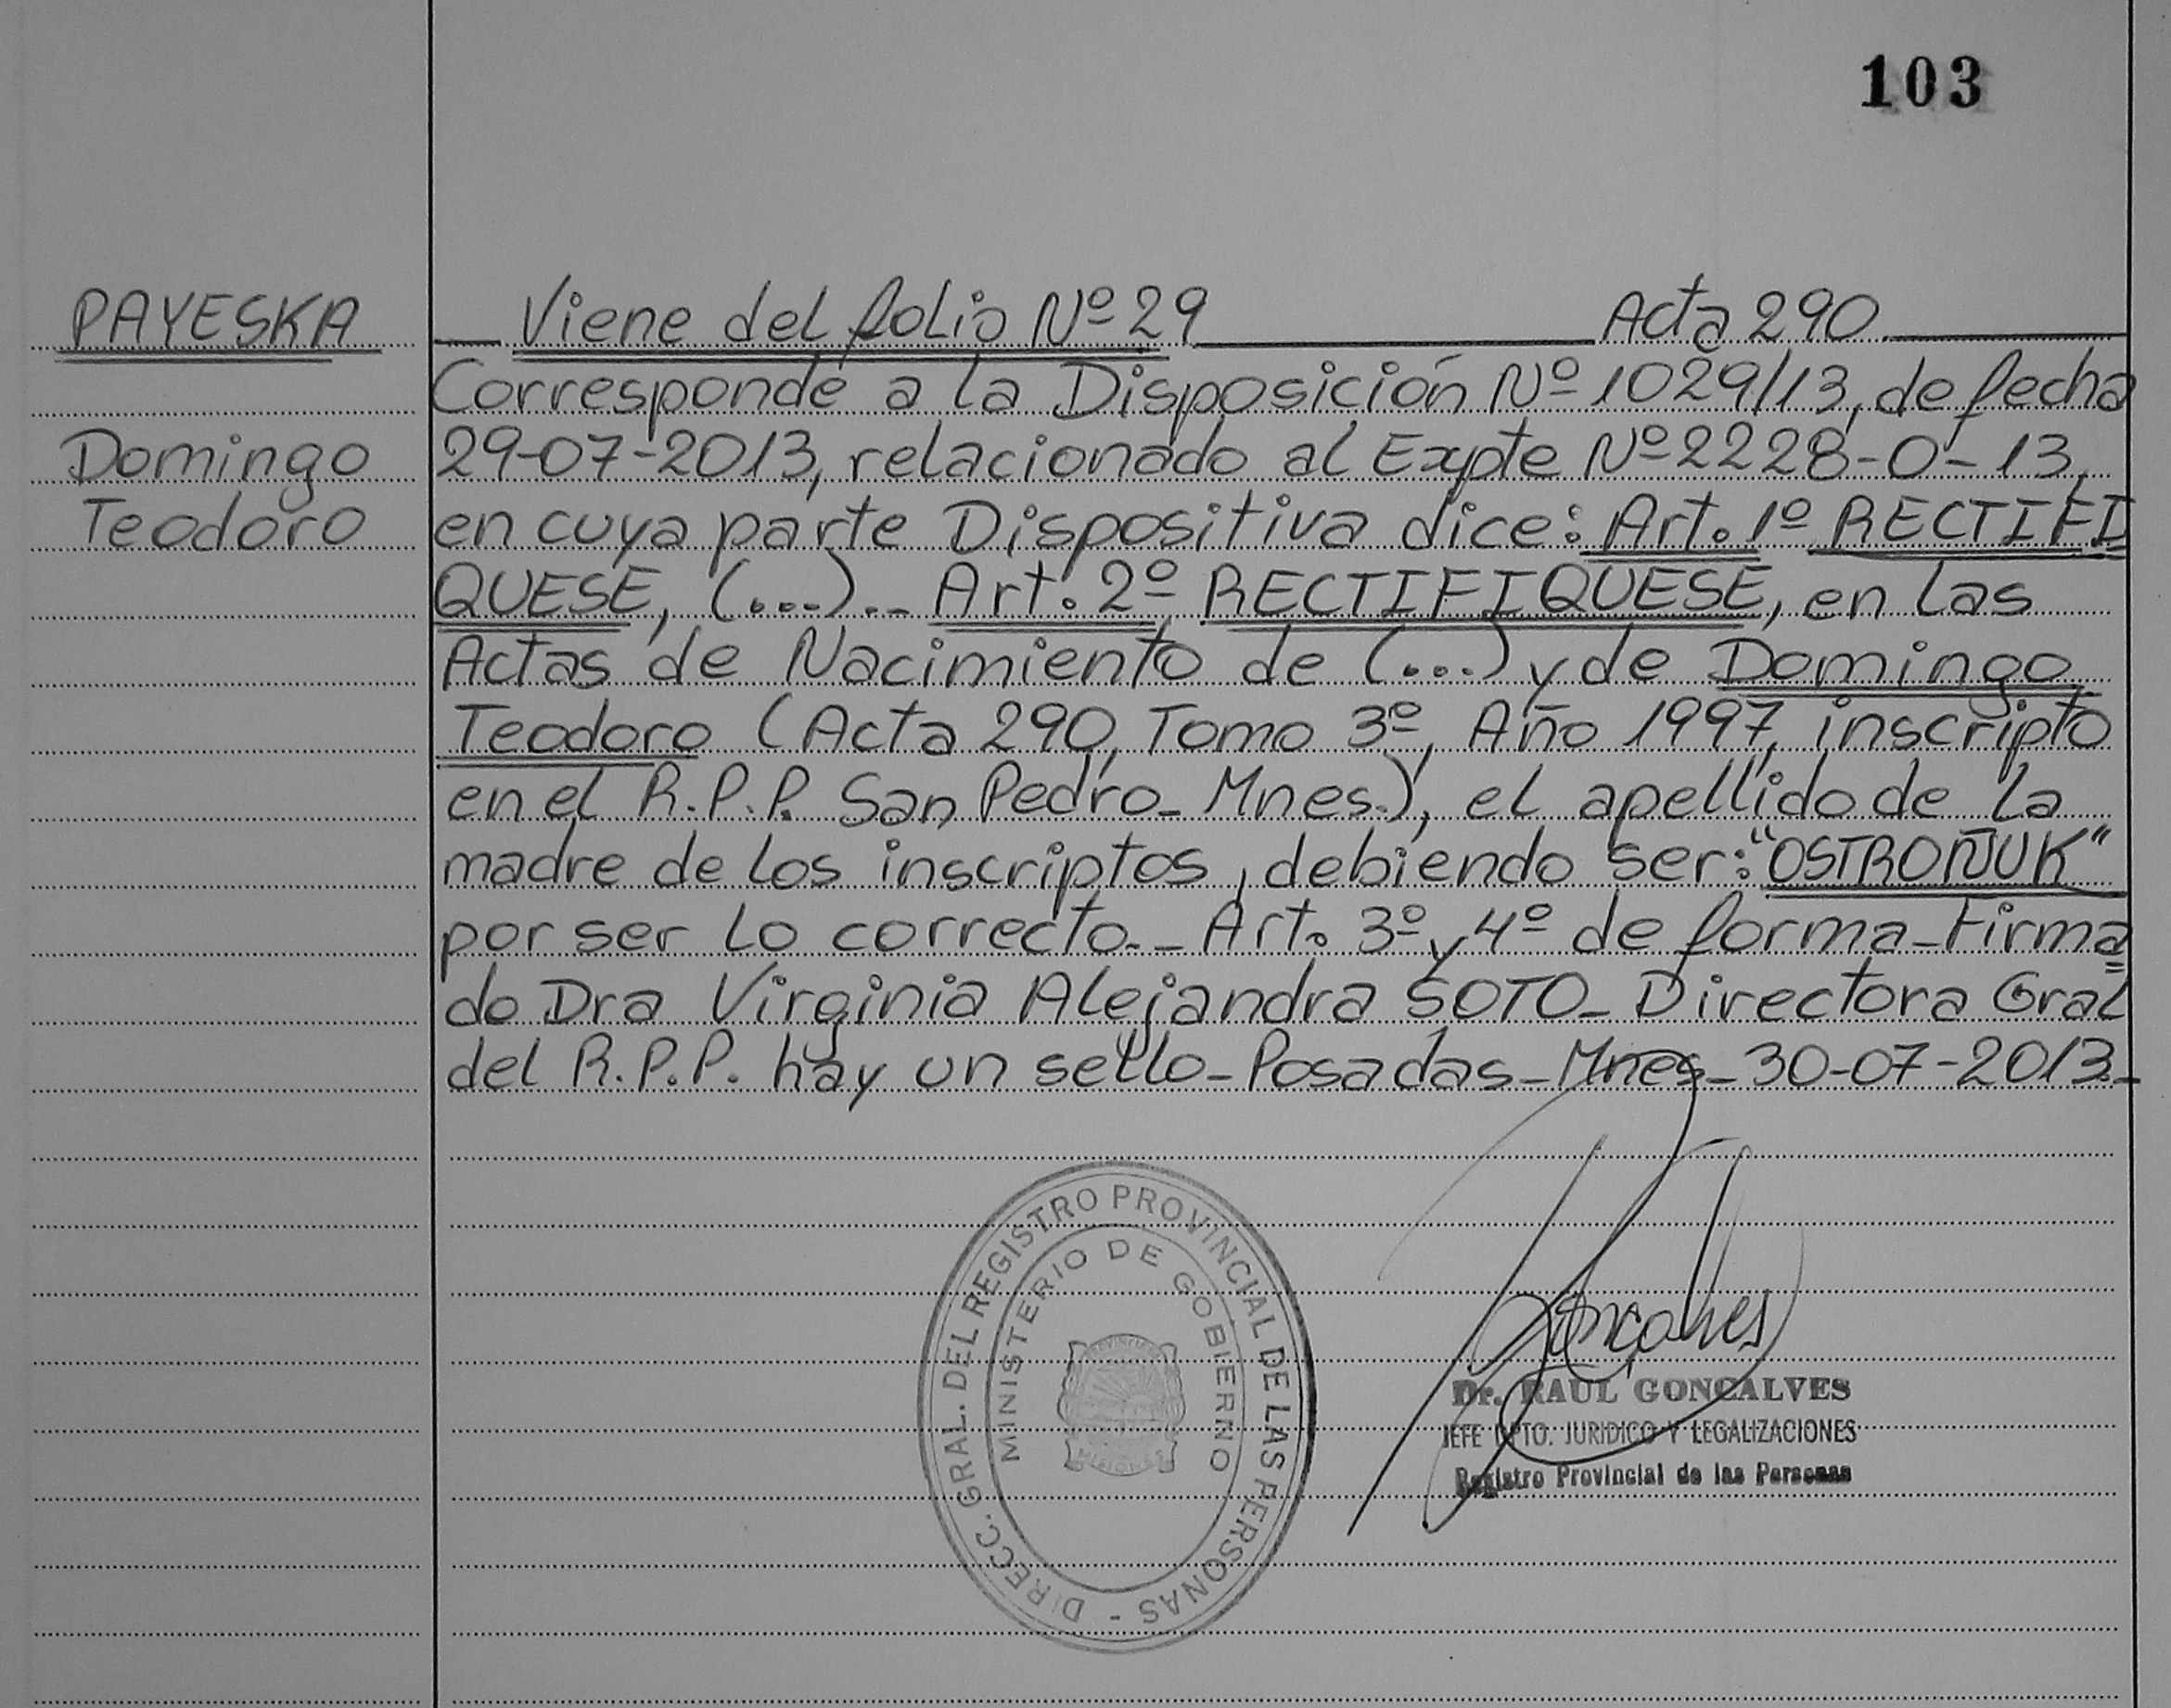 103
PAYESKA
Domingo
Teodoro
Viene del folio Nº 29 Acta 290
Corresponde a la Disposición Nº 1029/13, de fecha
29-07-2013, relacionado al Expte Nº 2228-O-13,
en cuya parte Dispositiva dice: Art. 1º RECTIFI
QUESE, (...)._ Art. 2º RECTIFIQUESE, en las
Actas de Nacimiento de (...) y de Domingo
Teodoro (Acta 290, Tomo 3º, Año 1997, inscripto
en el R.P.P. San Pedro_ Mnes.), el apellido de la
madre de los inscriptos, debiendo ser: "OSTROÑUK"
por ser lo correcto._ Art. 3º y 4º de forma_Firma
do Dra Virginia Alejandra SOTO_ Directora Gral
del R.P.P. hay un sello_Posadas_Mnes_30-07-2013._
DIRECC. GRAL. DEL REGISTRO PROVINCIAL DE LAS PERSONAS -
MINISTERIO DE GOBIERNO
PROVINCIA
MISIONES
Goncalves
Dr. RAUL GONCALVES
JEFE DPTO. JURIDICO Y LEGALIZACIONES
Registro Provincial de las Personas